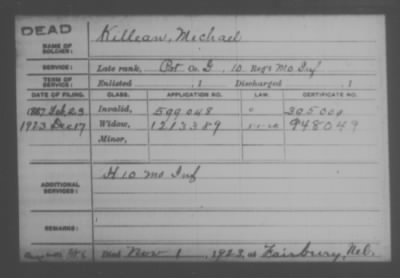 DEAD
NAME OF SOLDIER: Killean, Michael
SERVICE: Late rank, Pvt Co. G, 10 Reg't Mo Inf
TERM OF SERVICE: Enlisted , 1 Discharged , 1
DATE OF FILING. CLASS. APPLICATION NO. LAW. CERTIFICATE NO.
1887 Feb 23 Invalid, 599048
1923 Dec 17 Widow, 1213389 948049
Minor,
ADDITIONAL SERVICES: H 10 Mo Inf
REMARKS:
Died Nov 1, 1923, at Fairbury, Neb.